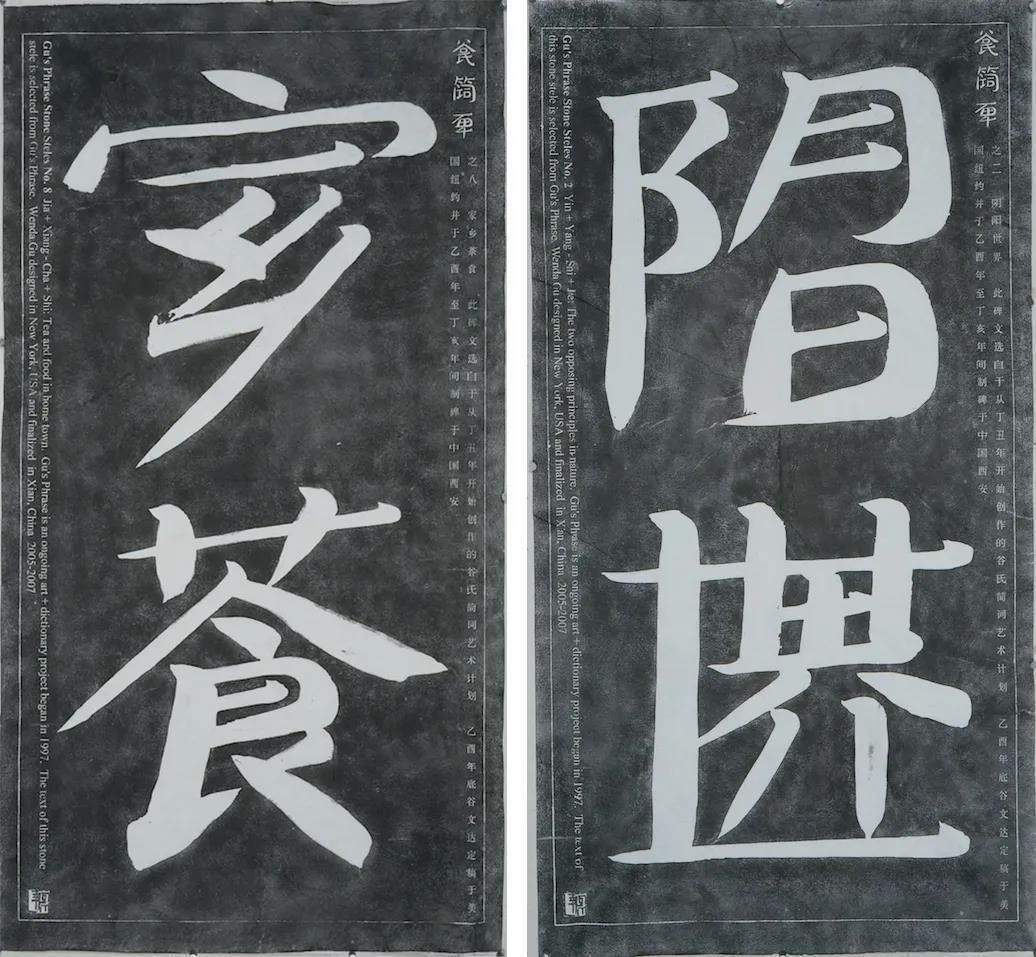 之八 家乡茶食 此碑文选自于从丁丑年开始创作的谷氏简词艺术计划 乙酉年底谷文达定稿于美
国纽约并于乙酉年至丁亥年间制碑于中国西安
Gu's Phrase Stone Steles No. 8 Jia + Xiang - Cha + Shi: Tea and food in home town. Gu's Phrase is an ongoing art + dictionary project began in 1997. The text of this stone
stele is selected from Gu's Phrase. Wenda Gu designed in New York, USA and finalized in Xian, China 2005-2007
之二 阴阳世界 此碑文选自于从丁丑年开始创作的谷氏简词艺术计划 乙酉年底谷文达定稿于美
国纽约并于乙酉年至丁亥年间制碑于中国西安
Gu's Phrase Stone Steles No. 2 Yin + Yang - Shi + Jie: The two opposing principles in nature. Gu's Phrase is an ongoing art + dictionary project began in 1997. The text of
this stone stele is selected from Gu's Phrase. Wenda Gu designed in New York, USA and finalized in Xi'an, China 2005-2007